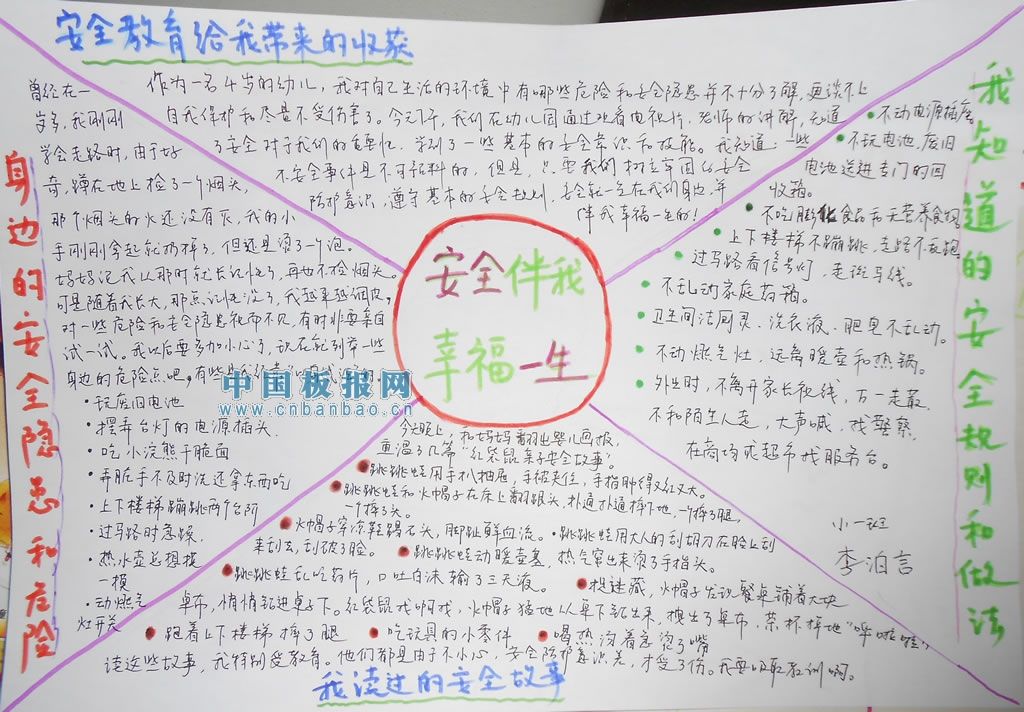 安全教育给我带来的收获
作为一名4岁的幼儿，我对自己生活的环境中有哪些危险和安全隐患并不十分了解，更谈不上
自我保护和尽量不受伤害了。今天下午，我们在幼儿园通过观看电视片，老师的讲解，知道
了安全对于我们的重要性，学到了一些基本的安全常识和技能。我知道：一些
不安全事件是不可预料的，但是，只要我们树立牢固的安全
防护意识，遵守基本的安全规则，安全就一定在我们身边，并
伴我幸福一生的！
身边的安全隐患和危险
曾经在一
岁多，我刚刚
学会走路时，由于好
奇，蹲在地上捡了一个烟头，
那个烟头的火还没有灭，我的小
手刚刚拿起就扔掉了，但还是烫了一个泡。
妈妈说我从那时就长记性了，再也不捡烟头。
可是随着我长大，那点记性没了，我越来越调皮，
对一些危险和安全隐患视而不见，有时非要亲自
试一试。我以后要多加小心了，现在就列举一些
身边的危险点吧，有些是我
中国板报网
www.cnbanbao.cn
•玩废旧电池
•摆弄台灯的电源插头.
•吃小浣熊干脆面
•弄脏手不及时洗还拿东西吃
•上下楼梯蹦跳两个台阶
•过马路时急躁.
•热水壶总想摸
一摸
•动燃气
灶开关
安全伴我
幸福一生
我知道的安全规则和做法
•不动电源插座.
•不玩电池，废旧
电池送进专门的回
收箱。
•不吃膨化食品和无营养食物
•上下楼梯不蹦跳，走路不乱跑
•过马路看信号灯，走斑马线。
•不乱动家庭药箱。
•卫生间洁厕灵、洗衣液、肥皂不乱动。
•不动燃气灶，远离暖壶和热锅。
•外出时，不离开家长视线，万一走散.
不和陌生人走，大声喊，找警察.
在商场或超市找服务台。
小一班
李泊言
今天晚上，和妈妈翻出婴儿画报，
重温了几篇“红袋鼠亲子安全故事”。
•跳跳蛙用手扒抽屉，手被夹住，手指肿得又红又大。
•跳跳蛙和火帽子在床上翻跟头，扑通扑通摔下地，一个摔了腿，
一个摔了头。
•火帽子穿凉鞋踢石头，脚趾鲜血流。•跳跳蛙用大人的刮胡刀在脸上刮
来刮去，刮破了脸。 •跳跳蛙动暖壶塞，热气窜出来烫了手指头。
•跳跳蛙乱吃药片，口吐白沫输了三天液。 •捉迷藏，火帽子发现餐桌铺着大块
桌布，悄悄钻进桌子下。红袋鼠找啊找，火帽子猛地从桌下钻出来，拽出了桌布，茶杯掉地“哗啦啦”
•跑着上下楼梯摔了腿 •吃玩具的小零件 •喝热汤着急烫了嘴
读这些故事，我特别受教育。他们都是由于不小心，安全防护意识差，才受了伤。我要以取教训啊。
我读过的安全故事